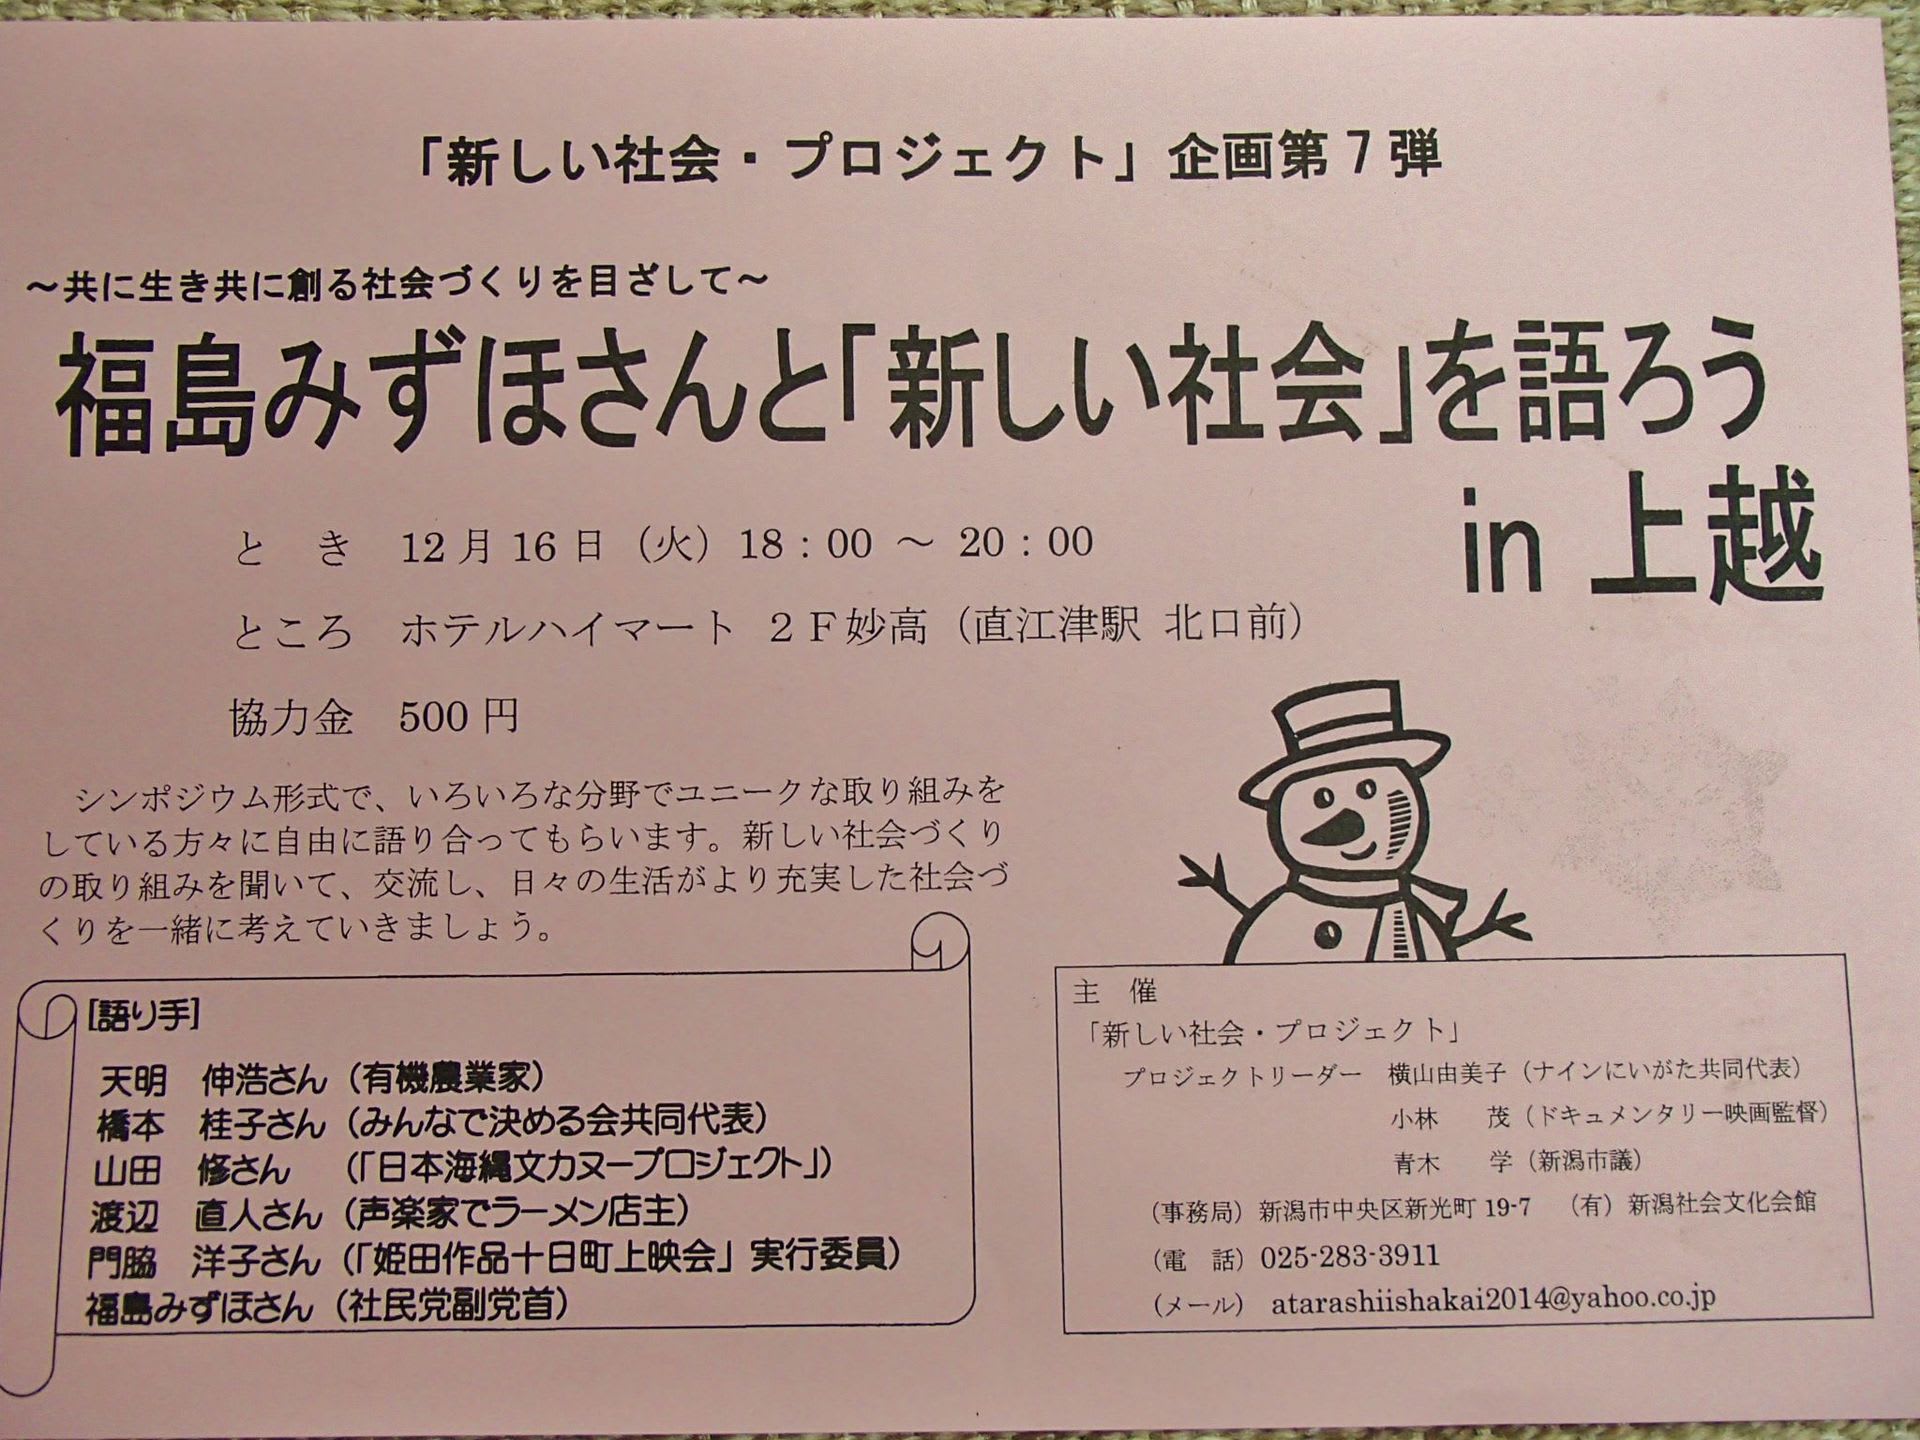 「新しい社会・プロジェクト」企画第７弾
～共に生き共に創る社会づくりを目ざして～
福島みずほさんと「新しい社会」を語ろう
in 上越
と　き　12月16日（火）18：00 ～ 20：00
ところ　ホテルハイマート ２Ｆ妙高（直江津駅 北口前）
協力金　500円
シンポジウム形式で、いろいろな分野でユニークな取り組みを
している方々に自由に語り合ってもらいます。新しい社会づくり
の取り組みを聞いて、交流し、日々の生活がより充実した社会づ
くりを一緒に考えていきましょう。
[語り手]
天明　伸浩さん（有機農業家）
橋本　桂子さん（みんなで決める会共同代表）
山田　修さん　（「日本海縄文カヌープロジェクト」）
渡辺　直人さん（声楽家でラーメン店主）
門脇　洋子さん（「姫田作品十日町上映会」実行委員）
福島みずほさん（社民党副党首）
主　催
「新しい社会・プロジェクト」
プロジェクトリーダー　横山由美子（ナインにいがた共同代表）
小林　　茂（ドキュメンタリー映画監督）
青木　　学（新潟市議）
（事務局）新潟市中央区新光町 19-7　（有）新潟社会文化会館
（電　話）025-283-3911
（メール）　atarashiishakai2014@yahoo.co.jp